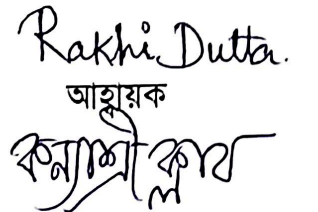 Rakhi Dutta.
আহ্বায়ক
কন্যাশ্রী ক্লাব